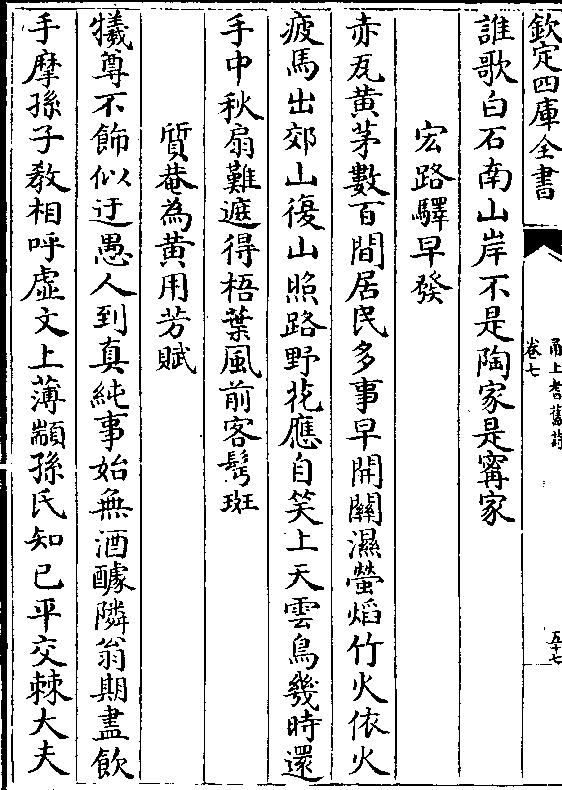 欽定四庫全書
甬上耆舊詩
卷七
五十七
誰歌白石南山岸不是陶家是寗家
宏路驛早發
赤瓦黄茅數百間居民多事早開關濕螢熖竹火依火
疲馬出郊山復山照路野花應自笑上天雲鳥幾時還
手中秋扇難遮得梧葉風前客髩斑
質菴為黄用芳賦
犧尊不飾似迂愚人到真純事始無酒醵隣翁期盡飲
手摩孫子教相呼虚文上薄顓孫氏知已平交棘大夫